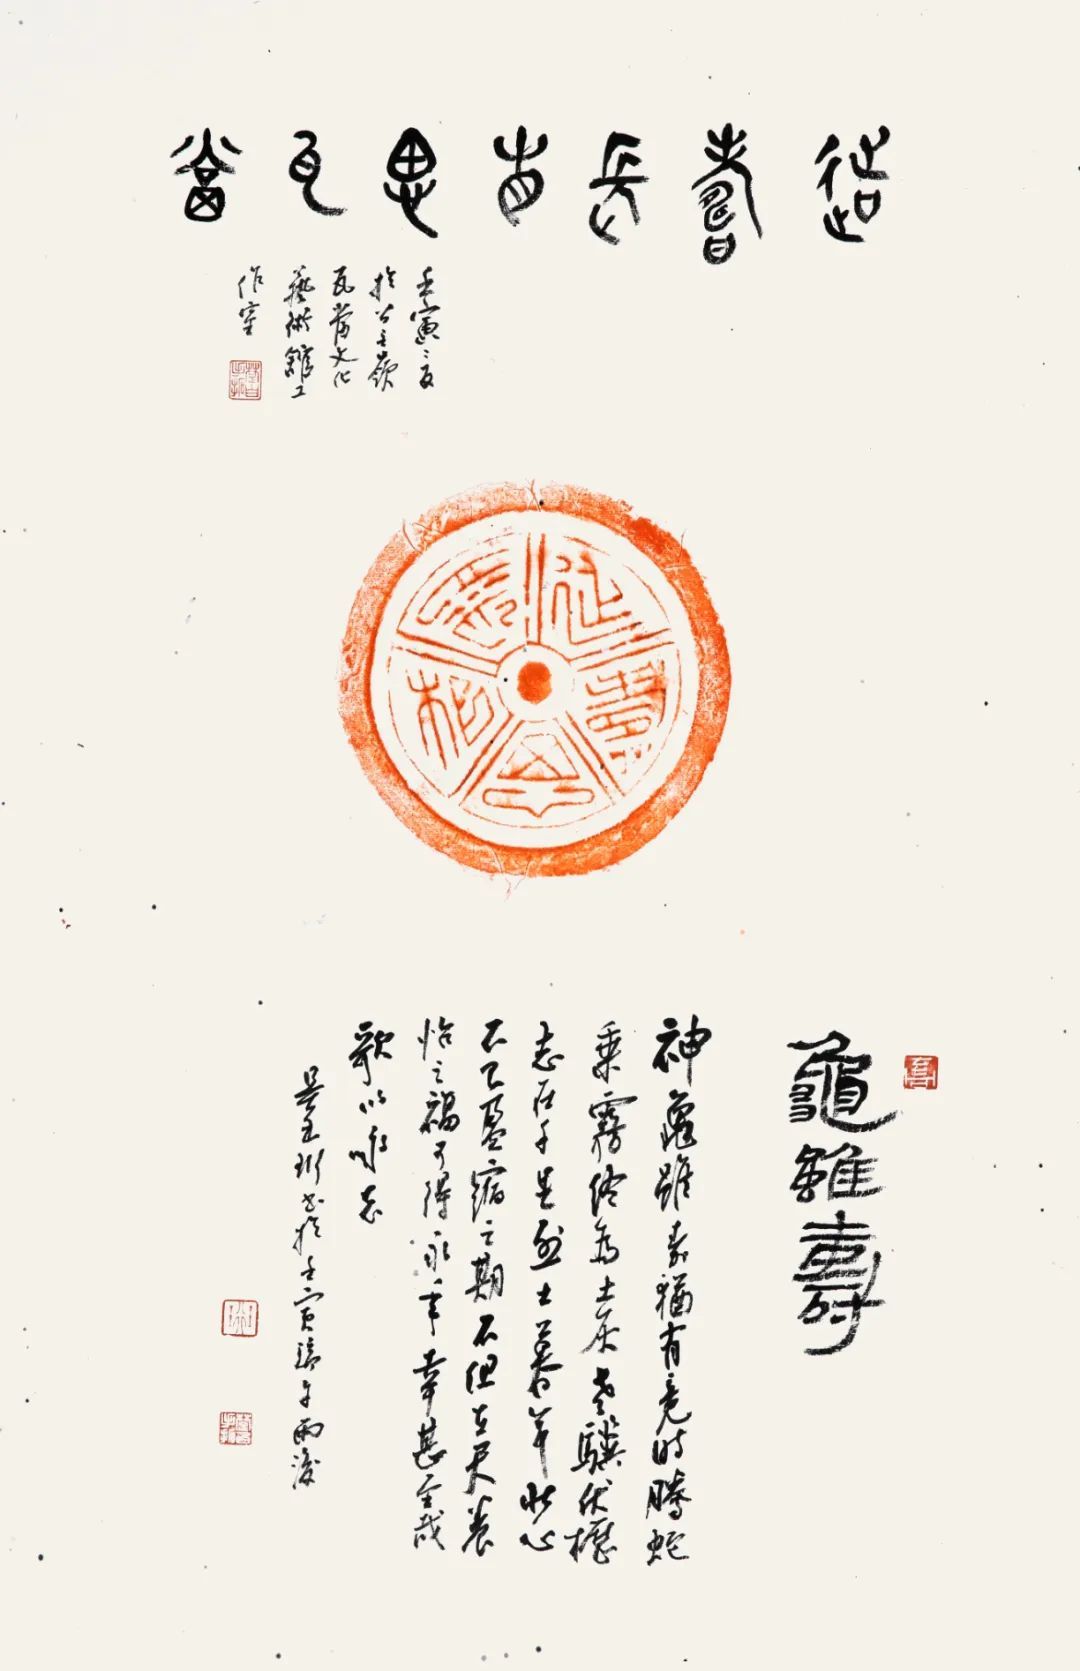 延壽長相思瓦當
壬寅之夏
於公主嶺
瓦當文化
藝術館工
作室
龜雖壽
神龜雖壽猶有竟時騰蛇
乘霧終為土灰老驥伏櫪
志在千里烈士暮年壯心
不已盈縮之期不但在天養
怡之福可得永年幸甚至哉
歌以咏志
書於壬寅端午雨後